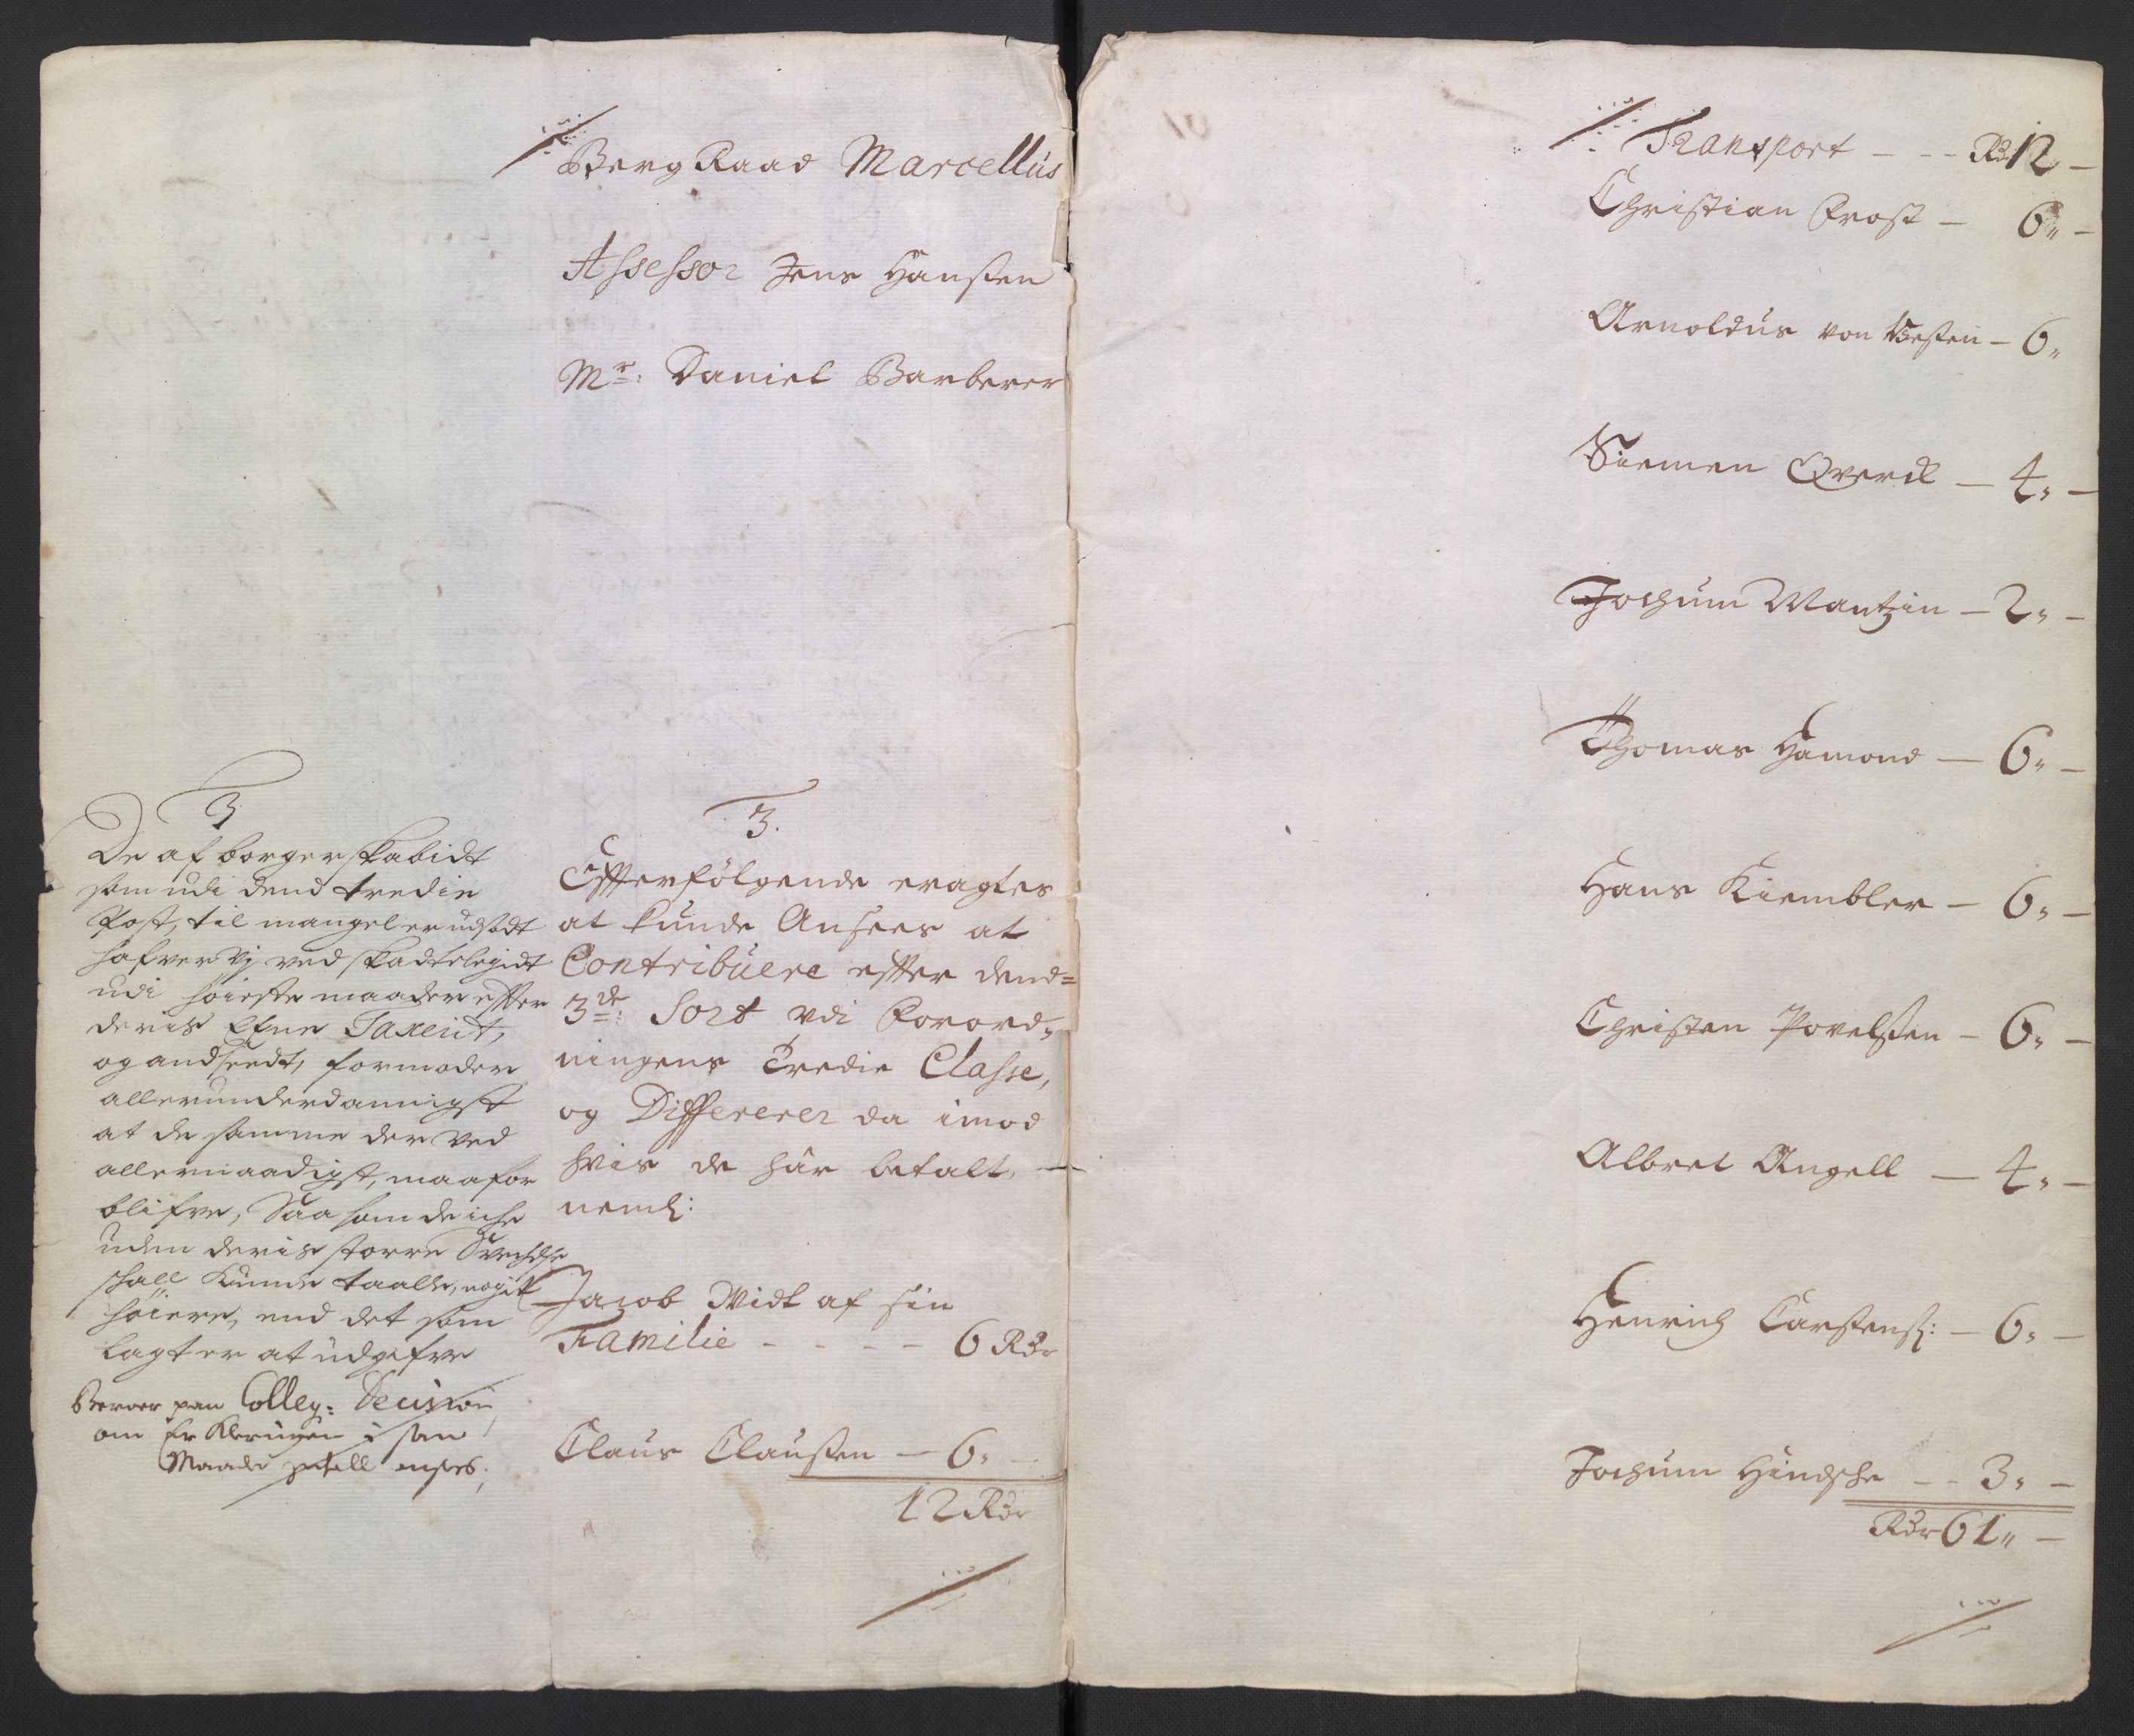 Berg Raad Marcellus
Assessor Jens Hanssen
Mr: Daniel Barberer
3
De af borgerskabidt
som udi dend tredie
Post, til mangel er udsadt
hafver Vj ved skadtelegidt
udi høieste maader effter
deris Efne Taxeirt,
og andseedt, formoder
allerunderdannigst
at de samme der ved
allernaadigst, maa for
blifve, Saa som de iche
uden deris større
schall kunde taalle, nogit
høiere, end det som
lagt er at udgifve
Beroer paa Colleg: Decision
om Erkleringen i saa
Maade schall
3.
Effterfølgende eragtes
at kunde Ansees at
Contribuere effter dend=
3de: Sort udi Forord=
ningens Tredie Classe,
og Differerer da imod
hvis de har betalt,
neml:
Jacob Widt af sin
Familie - - - - 6 Rdr
Claus Claussen - 6" -
12 Rdr
Transport - - - Rdr 12 -
Christian Frost - 6" -
Arnoldus von Westen - 6"
Siemen Qverck - 4" -
Jochum Mantzin - 2" -
Thomas Hamond - 6" -
Hans Kiembler - 6" -
Christen Povelssen - 6" -
Albret Angell - 4" -
Henrich Carstens: - 6" -
Jochum Hindsche - - 3" -
Rdr 61" -